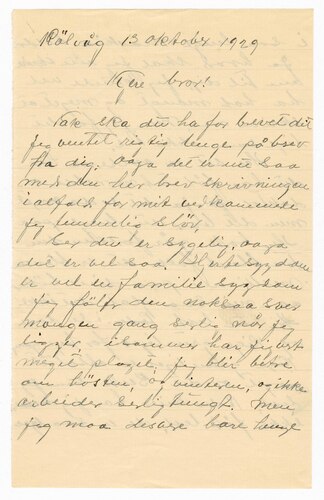 Kölvåg 13 oktober 1929
Kjere bror!
Tak ska du ha for brevet dit
Jeg ventet rigtig lenge på brev
fra dig. aaja det er nu saa
med den her brev skrivningen
i alfald for mit vedkommende
jeg temmelig slöv.
Ser du er sygelig, aaja
det er vel saa. Hjertesygdom
er vel en familie sygdom
jeg föler den noksaa sver
mangen gang serlig når jeg
ligger, isommer har jeg vert
meget plaget, jeg blir bedre
om hösten, og vinteren, og ikke
arbeider serlig tungt. Men
jeg maa desvere bare henge